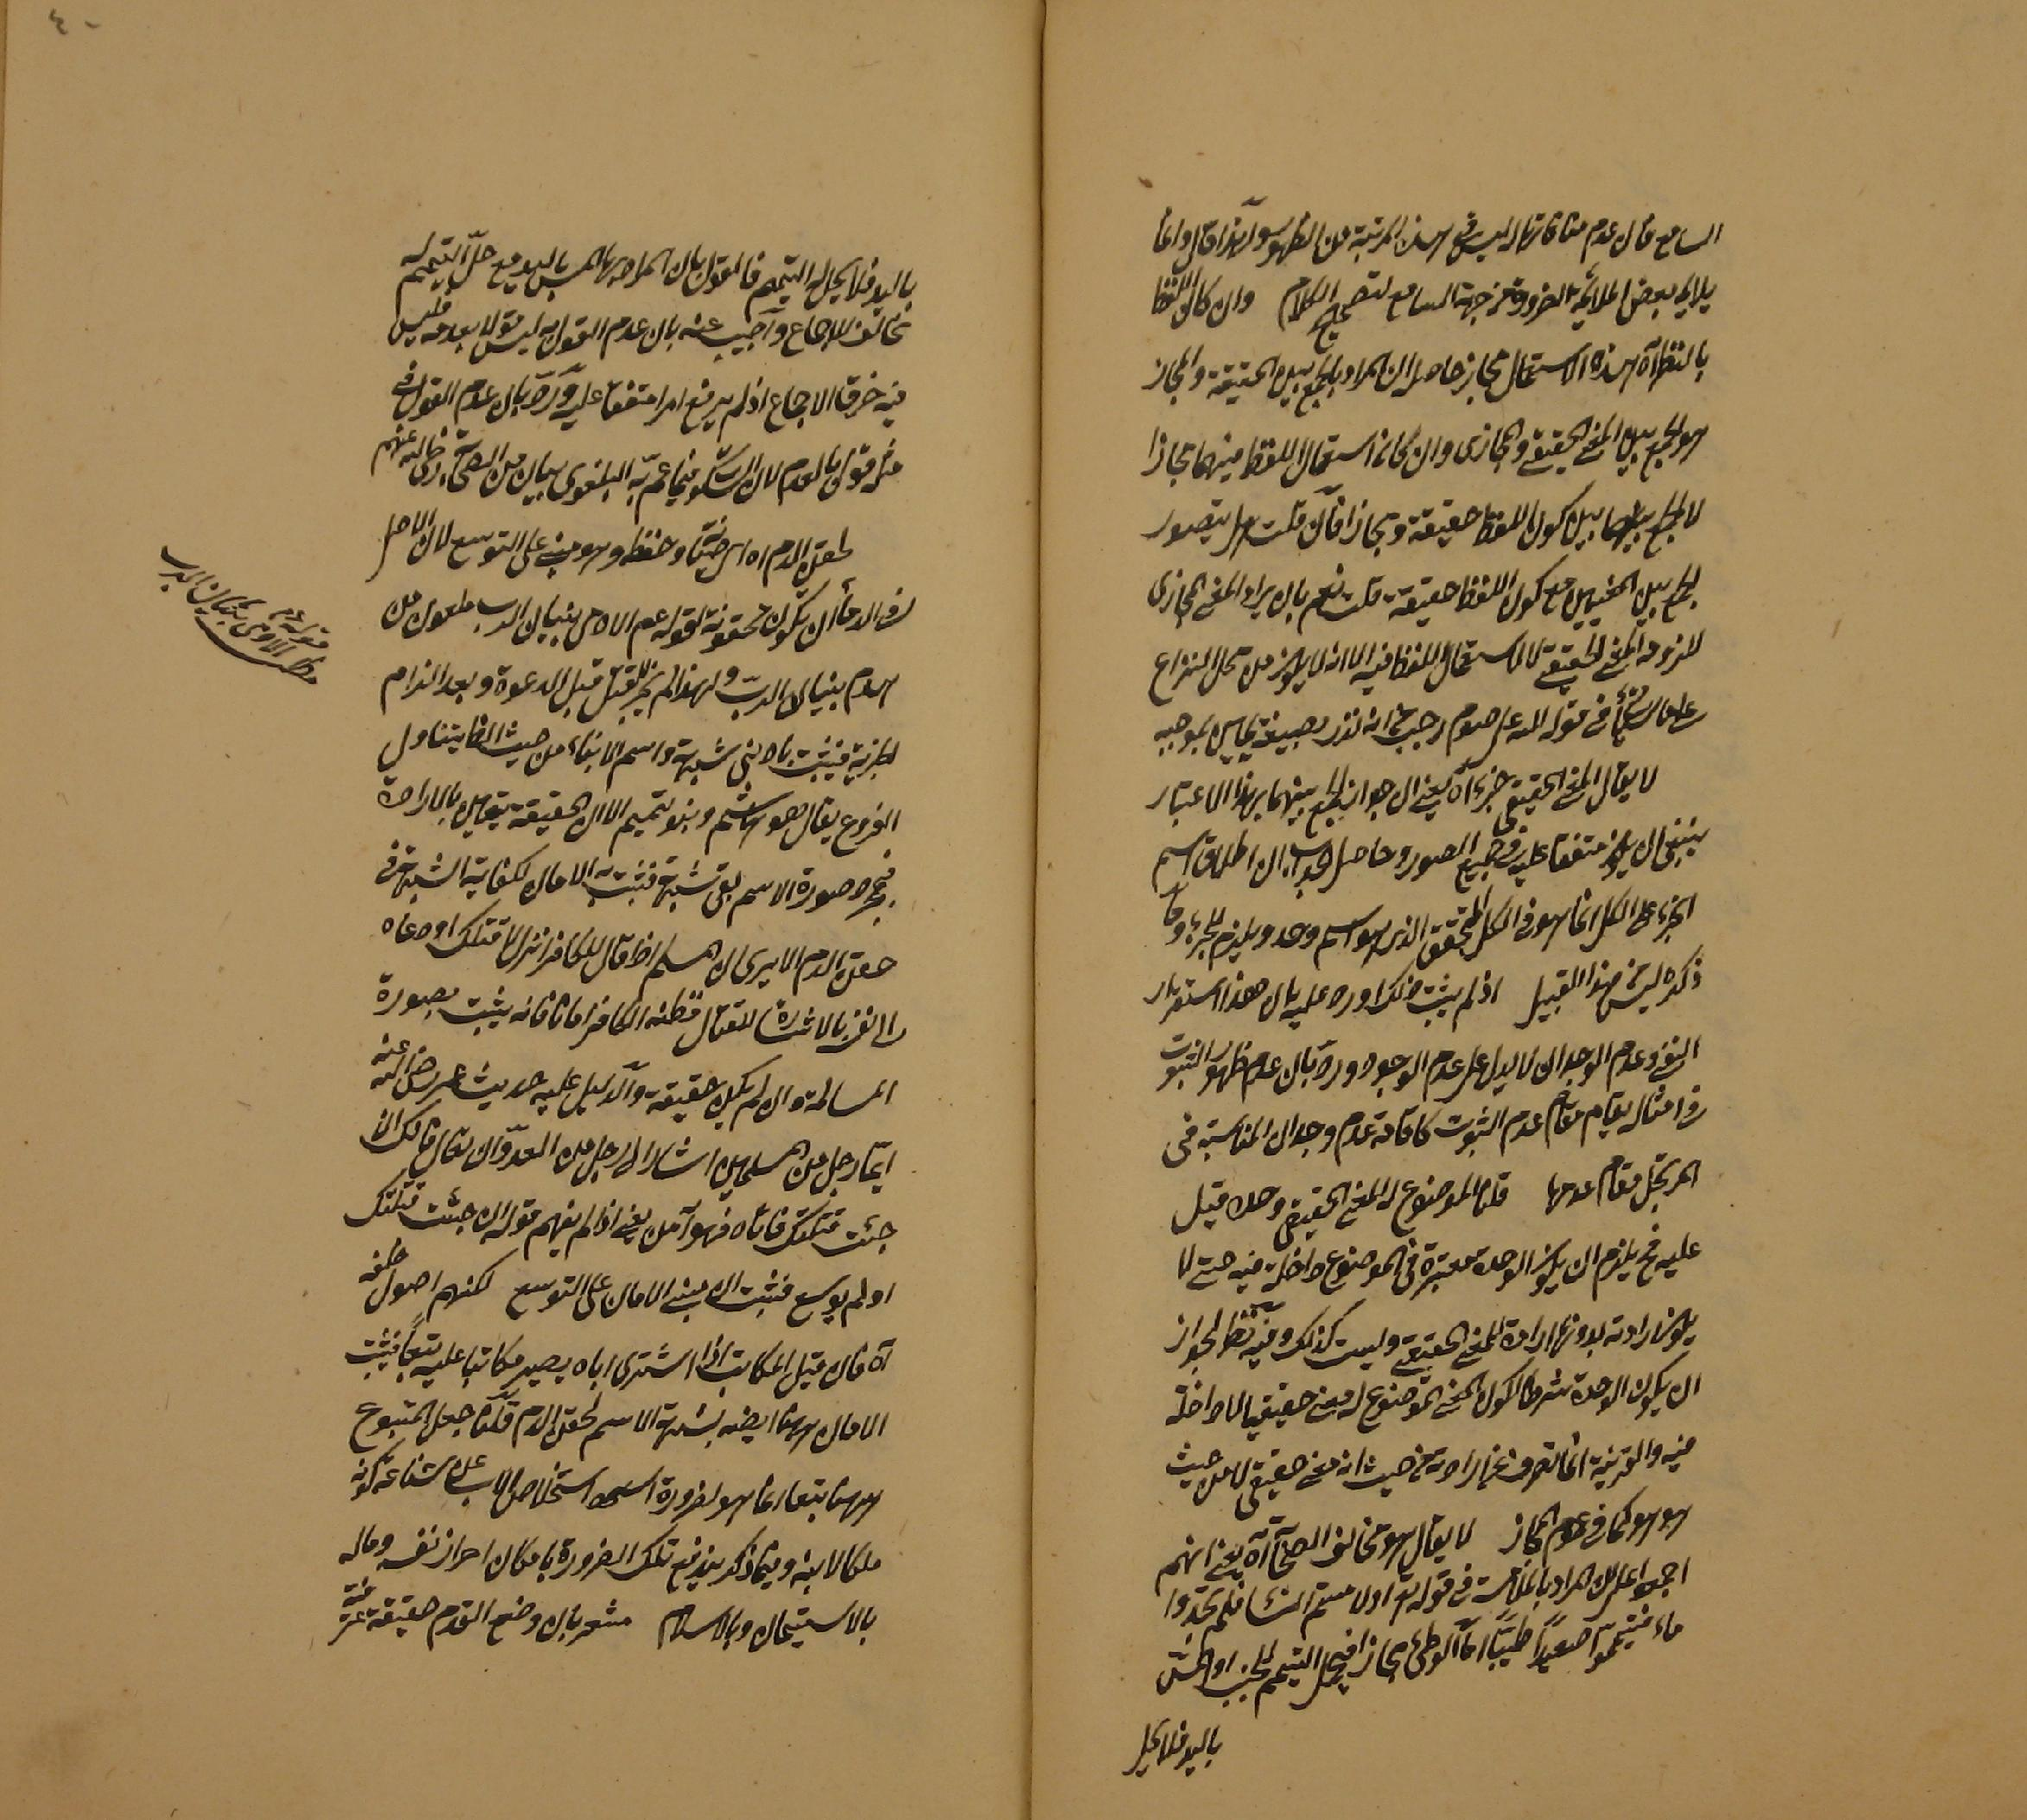 السامع فان عدم منافاتها له ليس في هذه المرتبة من الظهور ولهذا قال وانما
يلايم بعض الملايمة الضرورة من جهة السامع لتصحيح الكلام وان كان اللفظ
بالنظر آه هذه الاستعمال مجاز حاصله ان المراد بالجمع بين الحقيقة والمجاز
هو الجمع بين المعنى الحقيقي والمجازي وان كان استعمال اللفظ فيهما مجازا
لا الجمع بينهما بين كون اللفظ حقيقة ومجازا فان قلت هل يتصور
الجمع بين المعنيين مع كون اللفظ حقيقة قلت نعم بان يراد المعنى المجازي
للزومه المعنى الحقيقي لا لاستعمال اللفظ فيه الا انه لا يكون من محل النزاع
على ما سيأتي في قوله لله علي صوم رجب انه نذر بصيغته يمين بموجبه
لا يقال المعنى الحقيقي جزء آه يعني ان جواز الجمع بينهما بهذا الاعتبار
ينبغي ان يكون متفقا عليه في جميع الصور وحاصل الجواب ان اطلاق اسم
الجزء على الكل انما هو في الكل المتحقق الذي هو اسم وحد ويلزم الجزء وما
ذكره ليس من هذا القبيل اذ لم يثبت ذلك اورد عليه بان هذا استقراء
النفي وعدم الوجدان لا يدل على عدم الوجود ورد بان عدم ظهور الثبوت
في امثاله يقام مقام عدم الثبوت كاقامة عدم وجدان المناسبة في
المرتجل مقام عدمها قلنا الموضوع له المعنى الحقيقي وحده قيل
عليه فح يلزم ان يكون الوحدة معتبرة في الموضوع داخلة فيه حتى لا
يكون ارادته بدونها ارادة للمعنى الحقيقي وليست كذلك وفيه نظر لجواز
ان يكون الوحدة شرطا لكون المعنى الموضوع له معنى حقيقيا لا داخلة
فيه والقرينة انما تصرف عن ارادته من حيث انه معنى حقيقي لا من حيث
هو هو كما في عموم المجاز لا يقال هو مخالف الصحابة آه يعني انهم
اجمعوا على ان المراد بالملامسة في قوله تعالى او لامستم النساء فلم تجدوا
ماء فتيمموا صعيدا طيبا اما الوطئ مجازا فيحل التيمم للجنب او المس
باليد فلا يحل
باليد فلا يحل له التيمم فالقول بان المراد بها المس باليد مع حل التيمم له
مخالف للاجماع واجيب عنه بان عدم القول به ليس قولا بعدمه فليس
فيه خرق الاجماع اذ لم يرفع امرا متفقا عليه ورد بان عدم القول في
مثله قول بالعدم لان السكوت فيما عم به البلوى بيان من الصحابة رضي الله عنهم
لحقن الدم اه اي صيانته وحفظه وهو مبني على التوسع لان الاصل
في الدماء ان يكون محقونة لقوله عم الآدمي بنيان الرب ملعون من
هدم بنيان الرب ولهذا لم يجز القتل قبل الدعوة وبعد التزام
الجزية فيثبت بادنى شبهة واسم الابناء من حيث الظاهر يتناول
الفروع يقال بنو هاشم وبنو تميم الا ان الحقيقة يقدم بالارادة
فبمجرد صورة الاسم بقي شبهة فتثبت الامان لكفاية الشبهة في
حقن الدم الا يرى ان المسلم اذا قال للكافر انزل لاقتلك او دعاه
الى نفسه بالاشارة للقتال فظنه الكافر امانا فانه يثبت بصورة
المسالمة وان لم يكن حقيقة والدليل عليه حديث عمر رضي الله عنه
ايما رجل من المسلمين اشار الى رجل من العدو ان تعال فانك ان
جئت قتلتك فاتاه فهو آمن يعني اذا لم يفهم قوله ان جئت قتلتك
او لم يسمع فثبت ان مبنى الامان على التوسع لكنهم اصول خلقة
آه فان قيل المكاتب اذا اشترى اباه يصير مكاتبا عليه تبعا فيثبت
الامان ههنا ايضا بشبهة الاسم لحقن الدم قلنا جعل المتبوع
ههنا تبعا انما هو لضرورة استخلاص الاب عن شناعة كونه
ملكا لابنه وفيما ذكر يندفع تلك الضرورة بامكان احراز نفسه وماله
بالاستيمان وبالاسلام مشعر بان وضع القدم حقيقة عرفية
مطلب
قوله عم
الآدمي بنيان الرب